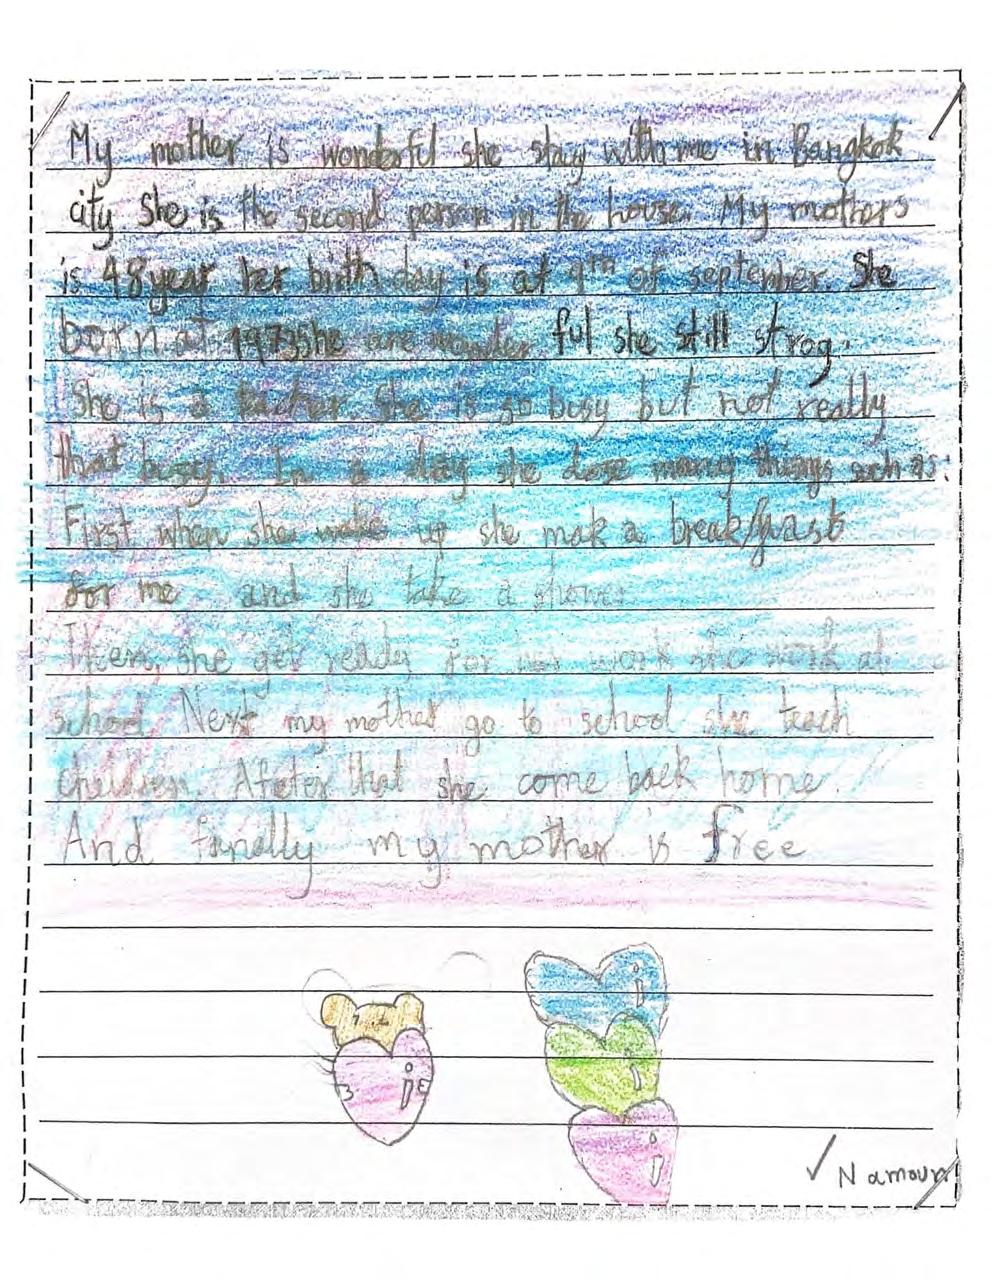 My mother is wonderful she stay with me in Bangkok
city She is the second person in the house. My mothers
is 48 year her birth day is at 9th of september. She
born at 1973 She are wonder ful she still strog.
She is a teacher. She is so busy but not really
that busy. In a day she dose many things such as:
First, when she wake up she make a breakfrast
for me and she take a shower
Then, she get ready for her work she work at
school. Next my mother go to school she teach
children. Afeter that she come back home.
And finally my mother is free
Namoun